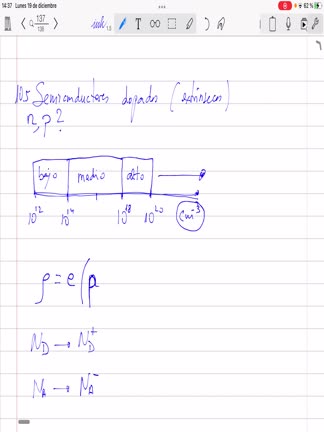 14:37 Lunes 19 de diciembre
62 %
137
138
10.5 Semiconductores dopados (extrínsecos)
n, p?
bajo medio alto
10^12 10^14 10^18 10^20 cm^-3
ρ = e (p
N_D → N_D^+
N_A → N_A^-